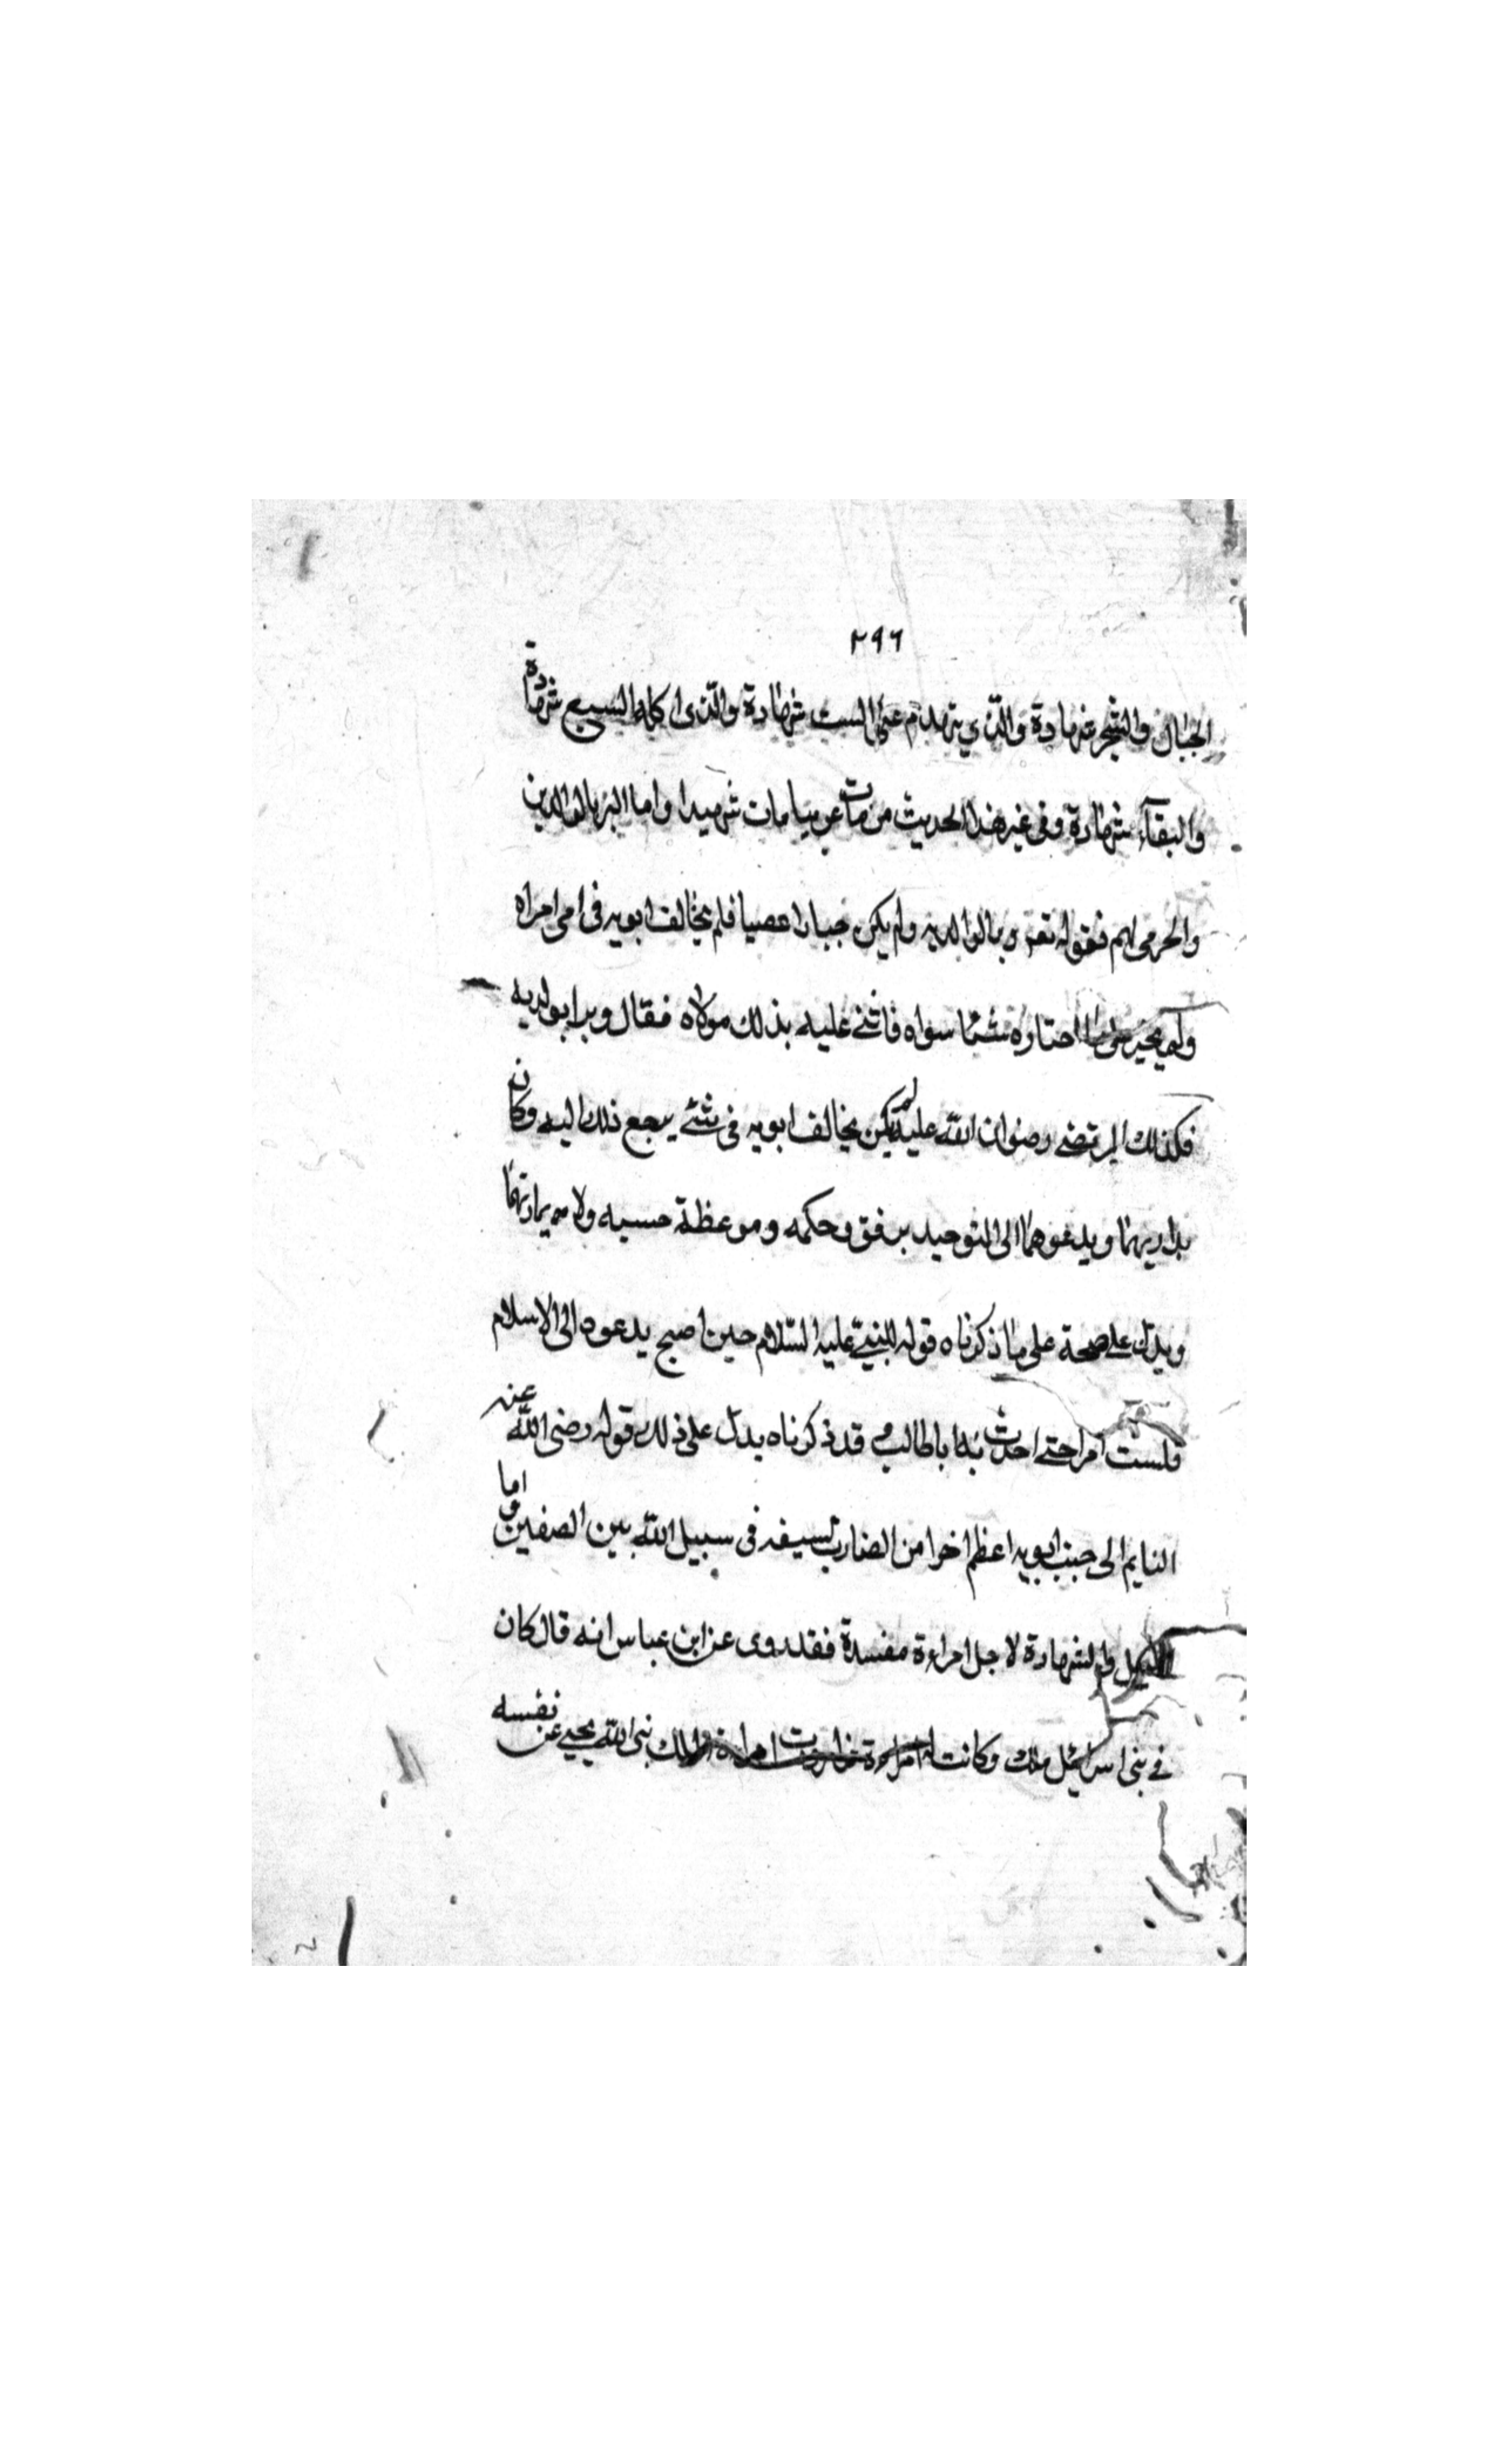 ٢٩٦
الجبال والشجر شهادة والذي ينهدم عليه البيت شهادة والذي اكله السبع شهادة
والبقآء شهادة وفي غير هذا الحديث من مات غريبا مات شهيدا واما البر بالوالدين
والحرمى لهم فقوله تعه وبالوالديه ولم يكن جبارا عصيا فلم يخالف ابويه فى امر امراه
ولم اختاره شيئا سواه فاثنى عليه بذلك مولاه فقال وبرا بولديه
فكذلك المرتضى رضوان الله عليه لم يكن يخالف ابويه فى شئ يرجع ذلك اليه وكان
يداريهما ويدعوهما الى التوحيد برفق وحكمه وموعظة حسنه ولا يماريهما
ويدل على صحة على ما ذكرناه قوله للنبي عليه السلام حين اصبح يدعوه الى الاسلام
فلست امرا حتى احدث به اباطالب قد ذكرناه يدل على ذلك قوله رضى الله عنه
النايم الى جنب ابويه اعظم اخرا من الضارب بسيفه فى سبيل الله بين الصفين واما
القتل والشهادة لاجل امراءة مفسدة فقد روى عن ابن عباس انه قال كان
في بنى اسرائيل ملك وكانت له امراءة نبى الله يحيى عن نفسه